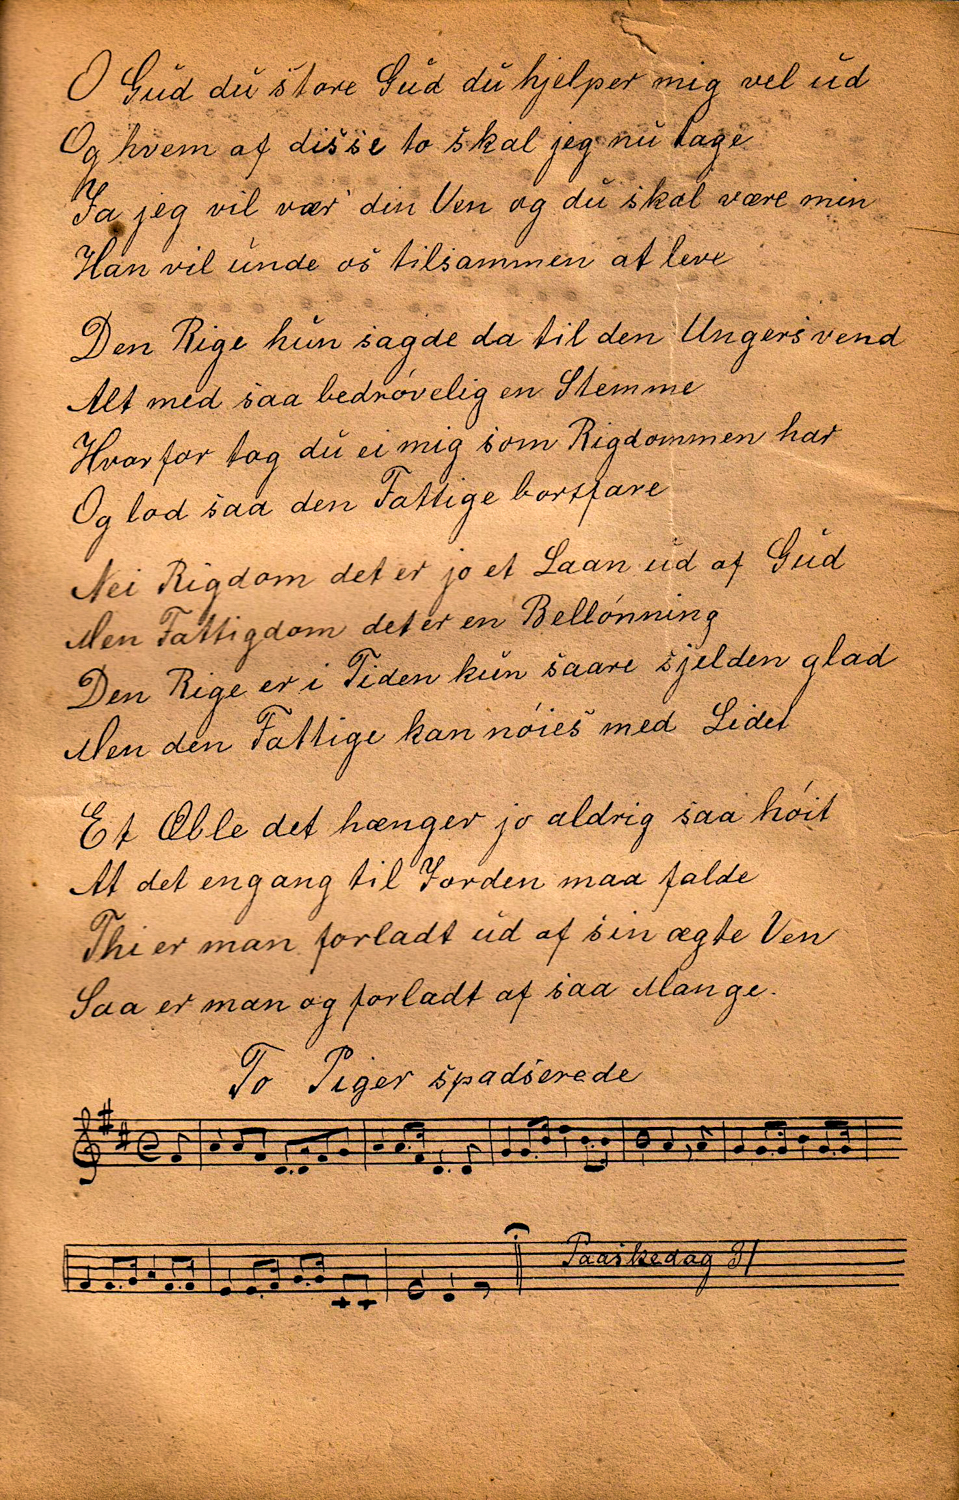 O Gud du store Gud du hjelper mig vel ud
Og hvem af disse to skal jeg nu tage
Ja jeg vil vær' din Ven og du skal være min
Han vil unde os tilsammen at leve
Den Rige hun sagde da til den Ungersvend
Alt med saa bedrøvelig en Stemme
Hvorfor tog du ei mig som Rigdommen har
Og lod saa den Fattige bortfare
Nei Rigdom det er jo et Laan ud af Gud
Men Fattigdom det er en Bellønning
Den Rige er i Tiden kun saare sjelden glad
Men den Fattige kan nøies med Lidet
Et Æble det hænger jo aldrig saa høit
At det engang til Jorden maa falde
Thi er man forladt ud af sin ægte Ven
Saa er man og forladt af saa Mange.
To Piger spadserede
Paaskedag 81